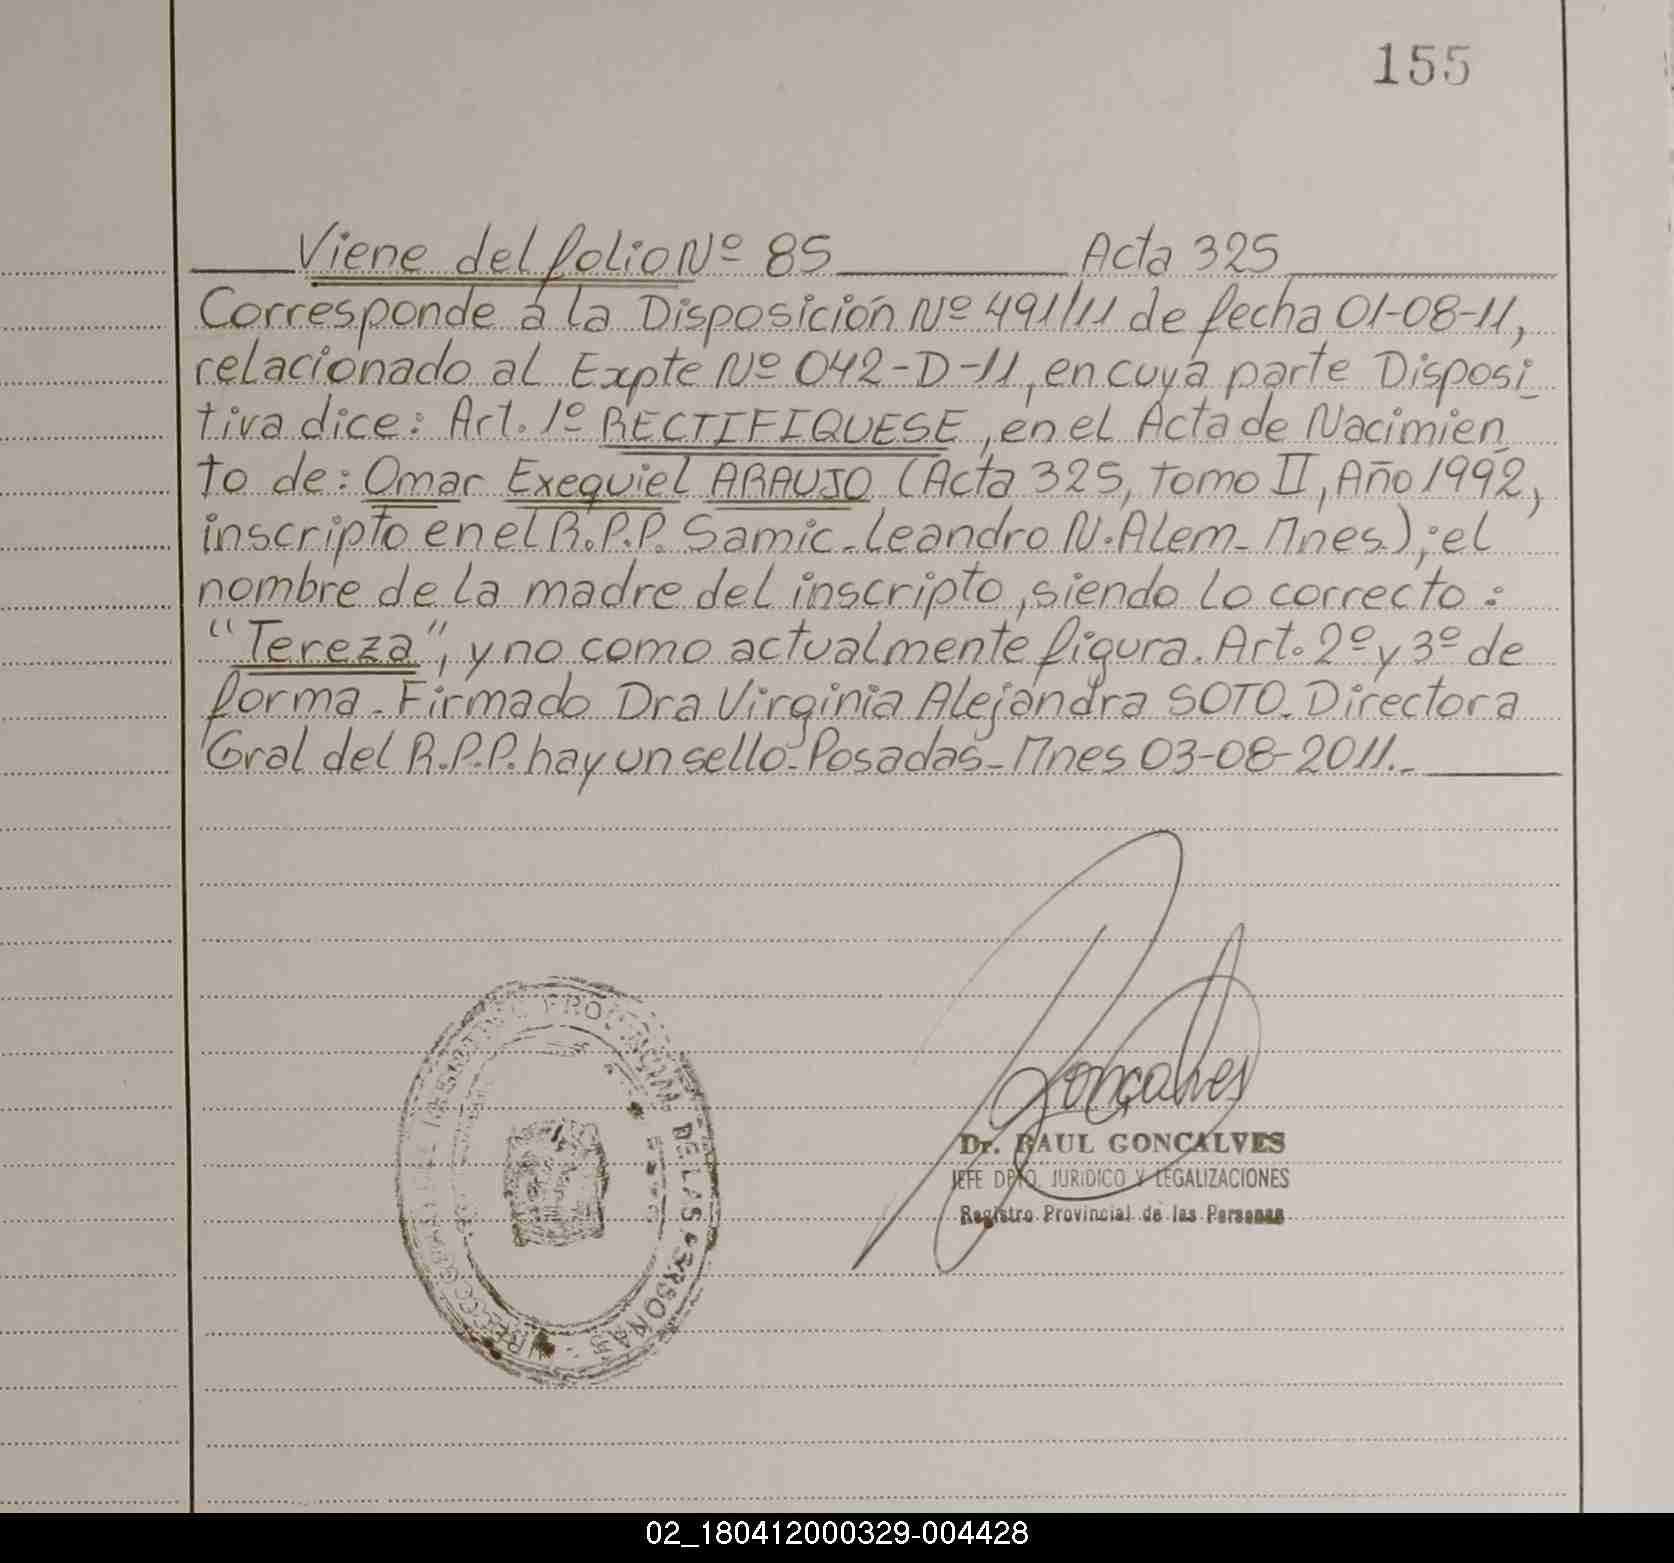 155
Viene del folio Nº 85 Acta 325
Corresponde a la Disposición Nº 491/11 de fecha 01-08-11,
relacionado al Expte Nº 042-D-11, en cuya parte Disposi_
tiva dice: Art. 1º RECTIFIQUESE, en el Acta de Nacimien_
to de: Omar Exequiel ARAUJO (Acta 325, Tomo II, Año 1992,
inscripto en el R.P.P. Samic_Leandro N. Alem_Mnes.); el
nombre de la madre del inscripto, siendo lo correcto:
"Tereza", y no como actualmente figura. Art. 2º y 3º de
forma_Firmado Dra Virginia Alejandra SOTO_Directora
Gral del R.P.P. hay un sello_Posadas_Mnes 03-08-2011._
Goncalves
Dr. RAUL GONCALVES
JEFE DPTO. JURIDICO Y LEGALIZACIONES
Registro Provincial de las Personas
PROVINCIAL DE LAS PERSONAS
02_180412000329-004428